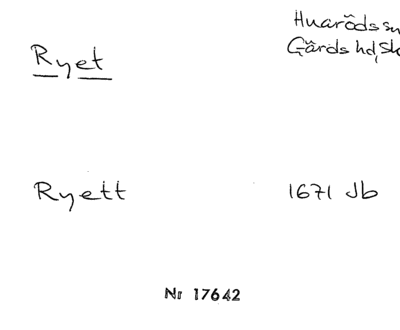 Huaröds sn
Ryet
Gärds hd, Sk
Ryett 1671 Jb
Nr 17642